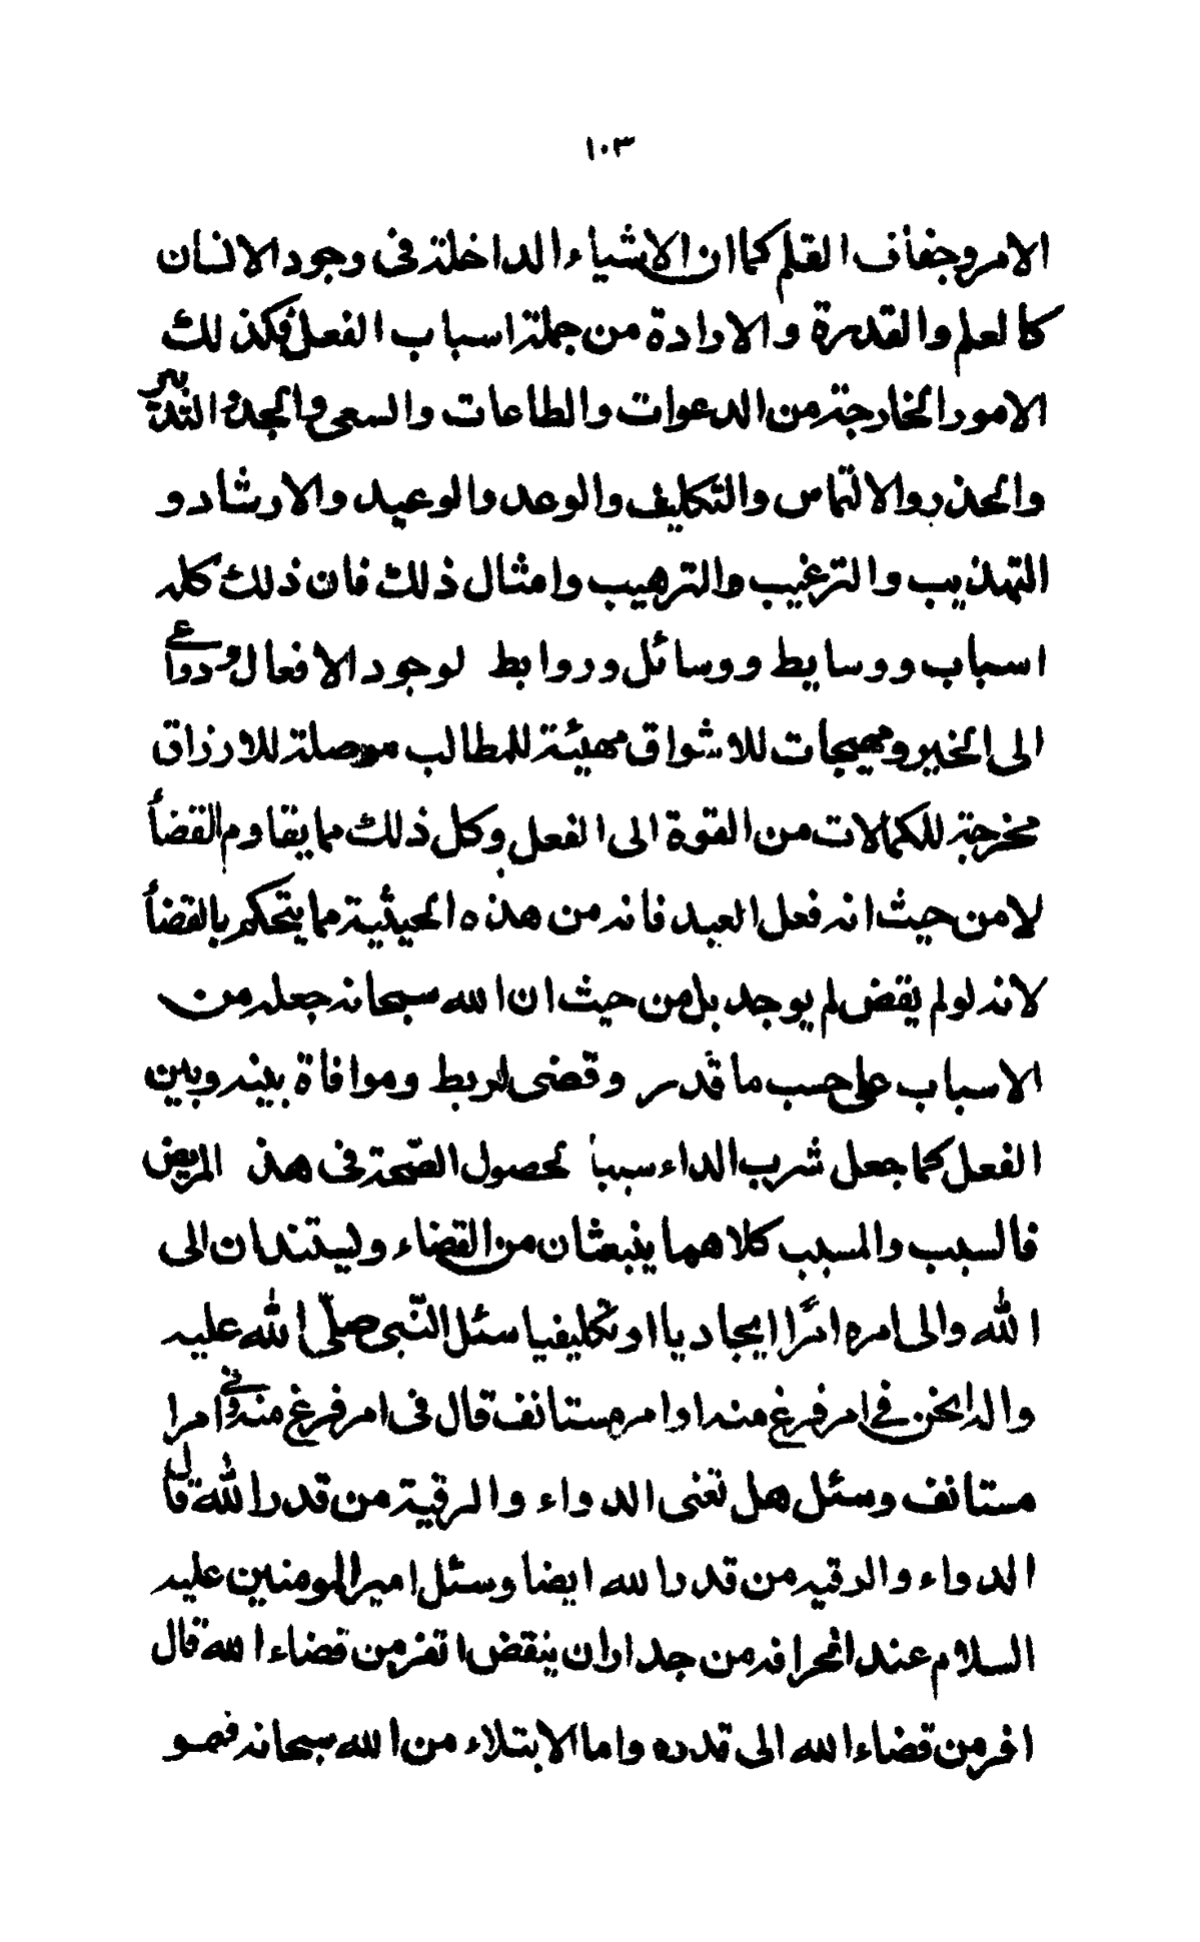 ١٠٣
الامر وجفاف القلم كما ان الاشياء الداخلة فى وجود الانسان
كالعلم والقدرة والارادة من جملة اسباب الفعل فكذلك
الامور الخارجة من الدعوات والطاعات والسعى والجد والتدبير
والحذر والالتماس والتكليف والوعد والوعيد والارشاد و
التهذيب والترغيب والترهيب وامثال ذلك فان ذلك كله
اسباب ووسايط ووسائل وروابط لوجود الافعال ودواعى
الى الخير ومهيجات للاشواق مهيئة للمطالب موصلة للارزاق
مخرجة للكمالات من القوة الى الفعل وكل ذلك مما يقاوم القضأ
لا من حيث انه فعل العبد فانه من هذه الحيثية مما يتحكم بالقضأ
لانه لو لم يقض لم يوجد بل من حيث ان الله سبحانه جعله من
الاسباب على حسب ما قدر وقضى لربط وموافاة بينه وبين
الفعل كما جعل شرب الداء سببا لحصول الصّحة فى هذ المريض
فالسبب والمسبب كلاهما ينبعثان من القضاء ويستندان الى
الله والى امره امرًا ايجاديا او تكليفيا سئل النّبى صلّى الله عليه
واله انحن فى امر فرغ منه او امر مستانف قال فى امر فرغ منه وفى امرا
مستانف وسئل هل تغنى الدواء والرقية من قدر الله قال
الدواء والرقيه من قدر الله ايضا وسئل امير المومنين عليه
السلام عند انحرافه من جدار ان ينقض اتفر من قضاء الله قال
افر من قضاء الله الى قدره واما الابتلاء من الله سبحانه فهو